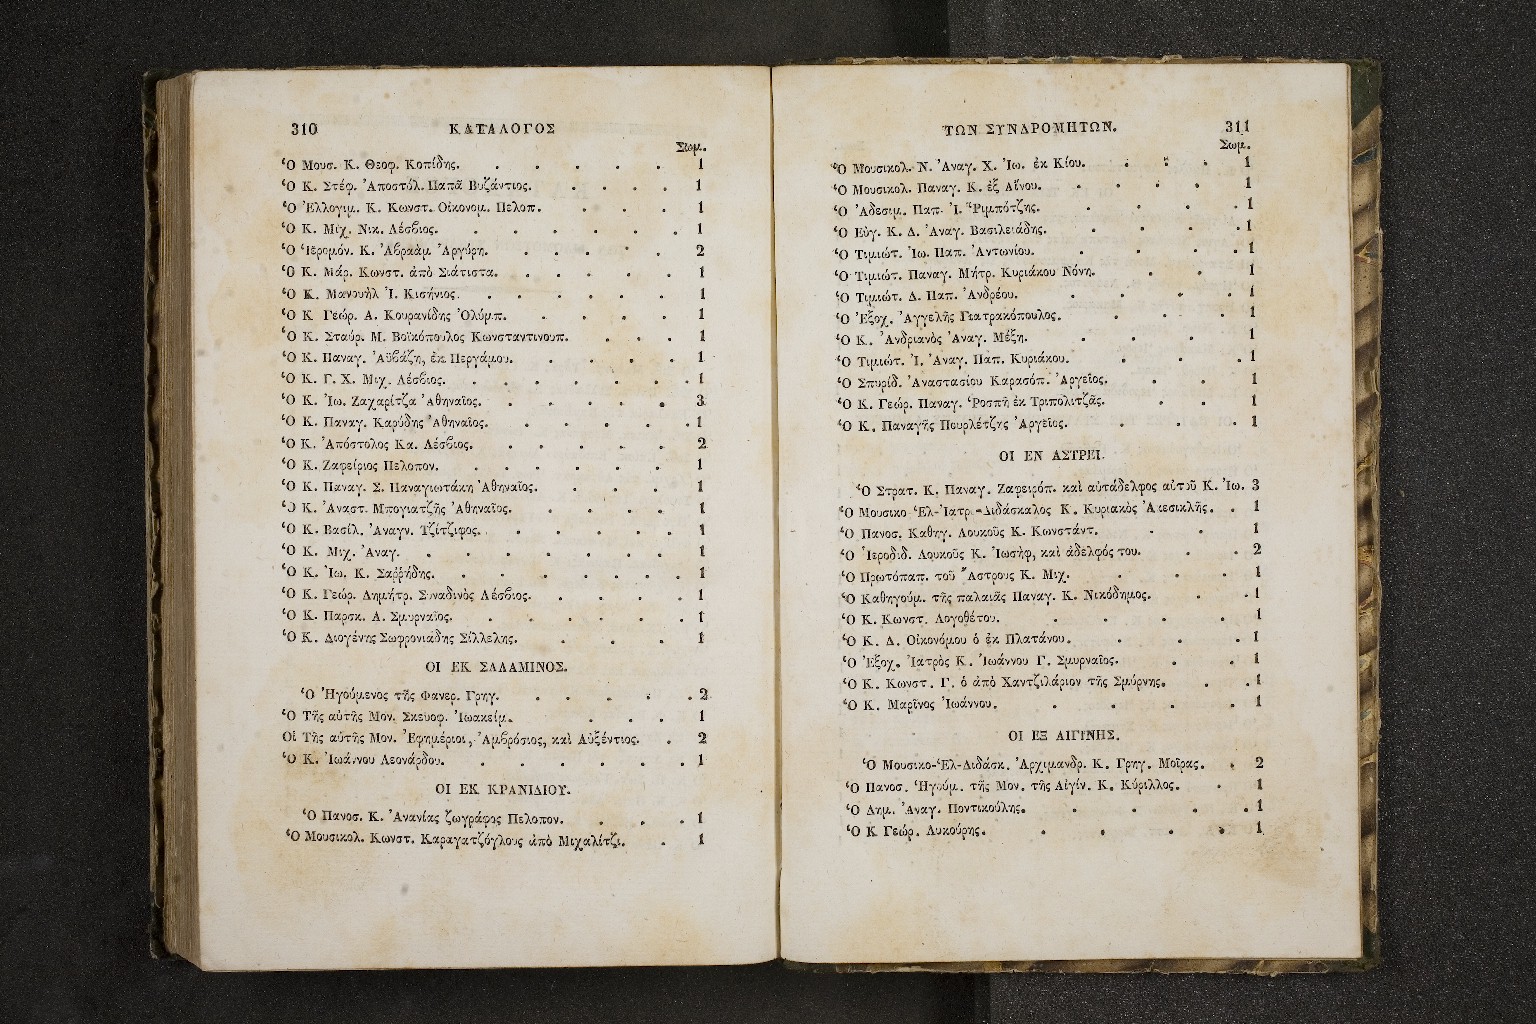 310 ΚΑΤΑΛΟΓΟΣ
Σωμ.
Ὁ Μουσ. Κ. Θεοφ. Κοπίδης. 1
Ὁ Κ. Στέφ. Ἀποστόλ. Παπᾶ Βυζάντιος. 1
Ὁ Ἐλλογιμ. Κ. Κωνστ. Οἰκονομ. Πελοπ. 1
Ὁ Κ. Μιχ. Νικ. Λέσβιος. 1
Ὁ Ἱερομόν. Κ. Ἀβραὰμ Ἀργύρη. 2
Ὁ Κ. Μάρ. Κωνστ. ἀπὸ Σιάτιστα. 1
Ὁ Κ. Μανουὴλ Ἰ. Κισήνιος. 1
Ὁ Κ Γεώρ. Α. Κουρανίδης Ὀλύμπ. 1
Ὁ Κ. Σταύρ. Μ. Βοϊκόπουλος Κωνσταντινουπ. 1
Ὁ Κ. Παναγ. Ἀϋβάζη, ἐκ Περγάμου. 1
Ὁ Κ. Γ. Χ. Μιχ. Λέσβιος. 1
Ὁ Κ. Ἰω. Ζαχαρίτζα Ἀθηναῖος. 3
Ὁ Κ. Παναγ. Καρύδης Ἀθηναῖος. 1
Ὁ Κ. Ἀπόστολος Κα. Λέσβιος. 2
Ὁ Κ. Ζαφείριος Πελοπον. 1
Ὁ Κ. Παναγ. Σ. Παναγιωτάκη Ἀθηναῖος. 1
Ὁ Κ. Ἀναστ. Μπογιατζῆς Ἀθηναῖος. 1
Ὁ Κ. Βασίλ. Ἀναγν. Τζίτζιφος. 1
Ὁ Κ. Μιχ. Ἀναγ. 1
Ὁ Κ. Ἰω. Κ. Σαῤῥήδης. 1
Ὁ Κ. Γεώρ. Δημήτρ. Συναδινὸς Λέσβιος. 1
Ὁ Κ. Παρσκ. Α. Σμυρναῖος. 1
Ὁ Κ. Διογένης Σωφρονιάδης Σίλλελης. 1
ΟΙ ΕΚ ΣΑΛΑΜΙΝΟΣ.
Ὁ Ἡγούμενος τῆς Φανερ. Γρηγ. 2
Ὁ Τῆς αὐτῆς Μον. Σκευοφ. Ἰωακείμ. 1
Οἱ Τῆς αὐτῆς Μον. Ἐφημέριοι, Ἀμβρόσιος, καὶ Αὐξέντιος. 2
Ὁ Κ. Ἰωάννου Λεονάρδου. 1
ΟΙ ΕΚ ΚΡΑΝΙΔΙΟΥ.
Ὁ Πανοσ. Κ. Ἀνανίας ζωγράφος Πελοπον. 1
Ὁ Μουσικολ. Κωνστ. Καραγατζόγλους ἀπὸ Μιχαλίτζι. 1
ΤΩΝ ΣΥΝΔΡΟΜΗΤΩΝ. 311
Σωμ.
Ὁ Μουσικολ. Ν. Ἀναγ. Χ. Ἰω. ἐκ Κίου. 1
Ὁ Μουσικολ. Παναγ. Κ. ἐξ Αἴνου. 1
Ὁ Ἀδεσιμ. Παπ. Ἰ. Ῥιμπότζης. 1
Ὁ Εὐγ. Κ. Δ. Ἀναγ. Βασιλειάδης. 1
Ὁ Τιμιώτ. Ἰω. Παπ. Ἀντωνίου. 1
Ὁ Τιμιώτ. Παναγ. Μήτρ. Κυριάκου Νόνη. 1
Ὁ Τιμιώτ. Δ. Παπ. Ἀνδρέου. 1
Ὁ Ἐξοχ. Ἀγγελῆς Γιατρακόπουλος. 1
Ὁ Κ. Ἀνδριανὸς Ἀναγ. Μέξη. 1
Ὁ Τιμιώτ. Ἰ. Ἀναγ. Παπ. Κυριάκου. 1
Ὁ Σπυρίδ. Ἀναστασίου Καρασόπ. Ἀργεῖος. 1
Ὁ Κ. Γεώρ. Παναγ. Ῥοσπῆ ἐκ Τριπολιτζᾶς. 1
Ὁ Κ. Παναγῆς Πουρλέτζης Ἀργεῖος. 1
ΟΙ ΕΝ ΑΣΤΡΕΙ.
Ὁ Στρατ. Κ. Παναγ. Ζαφειρόπ. καὶ αὐτάδελφος αὐτοῦ Κ. Ἰω. 3
Ὁ Μουσικο-Ἑλ-Ἰατρ.-Διδάσκαλος Κ. Κυριακὸς 1
Ὁ Πανοσ. Καθηγ. Λουκοῦς Κ. Κωνστάντ. 1
Ὁ Ἱεροδιδ. Λουκοῦς Κ. Ἰωσὴφ, καὶ ἀδελφός του. 2
Ὁ Πρωτόπαπ. τοῦ Ἄστρους Κ. Μιχ. 1
Ὁ Καθηγούμ. τῆς παλαιᾶς Παναγ. Κ. Νικόδημος. 1
Ὁ Κ. Κωνστ. Λογοθέτου. 1
Ὁ Κ. Δ. Οἰκονόμου ὁ ἐκ Πλατάνου. 1
Ὁ Ἐξοχ. Ἰατρὸς Κ. Ἰωάννου Γ. Σμυρναῖος. 1
Ὁ Κ. Κωνστ. Γ. ὁ ἀπὸ Χαντζιλάριον τῆς Σμύρνης. 1
Ὁ Κ. Μαρῖνος Ἰωάννου. 1
ΟΙ ΕΞ ΑΙΓΙΝΗΣ.
Ὁ Μουσικο-Ἑλ-Διδάσκ. Ἀρχιμανδρ. Κ. Γρηγ. Μοῖρας. 2
Ὁ Πανοσ. Ἡγούμ. τῆς Μον. τῆς Αἰγίν. Κ. Κύριλλος. 1
Ὁ Δημ. Ἀναγ. Ποντικούλης. 1
Ὁ Κ Γεώρ. Λυκούρης. 1